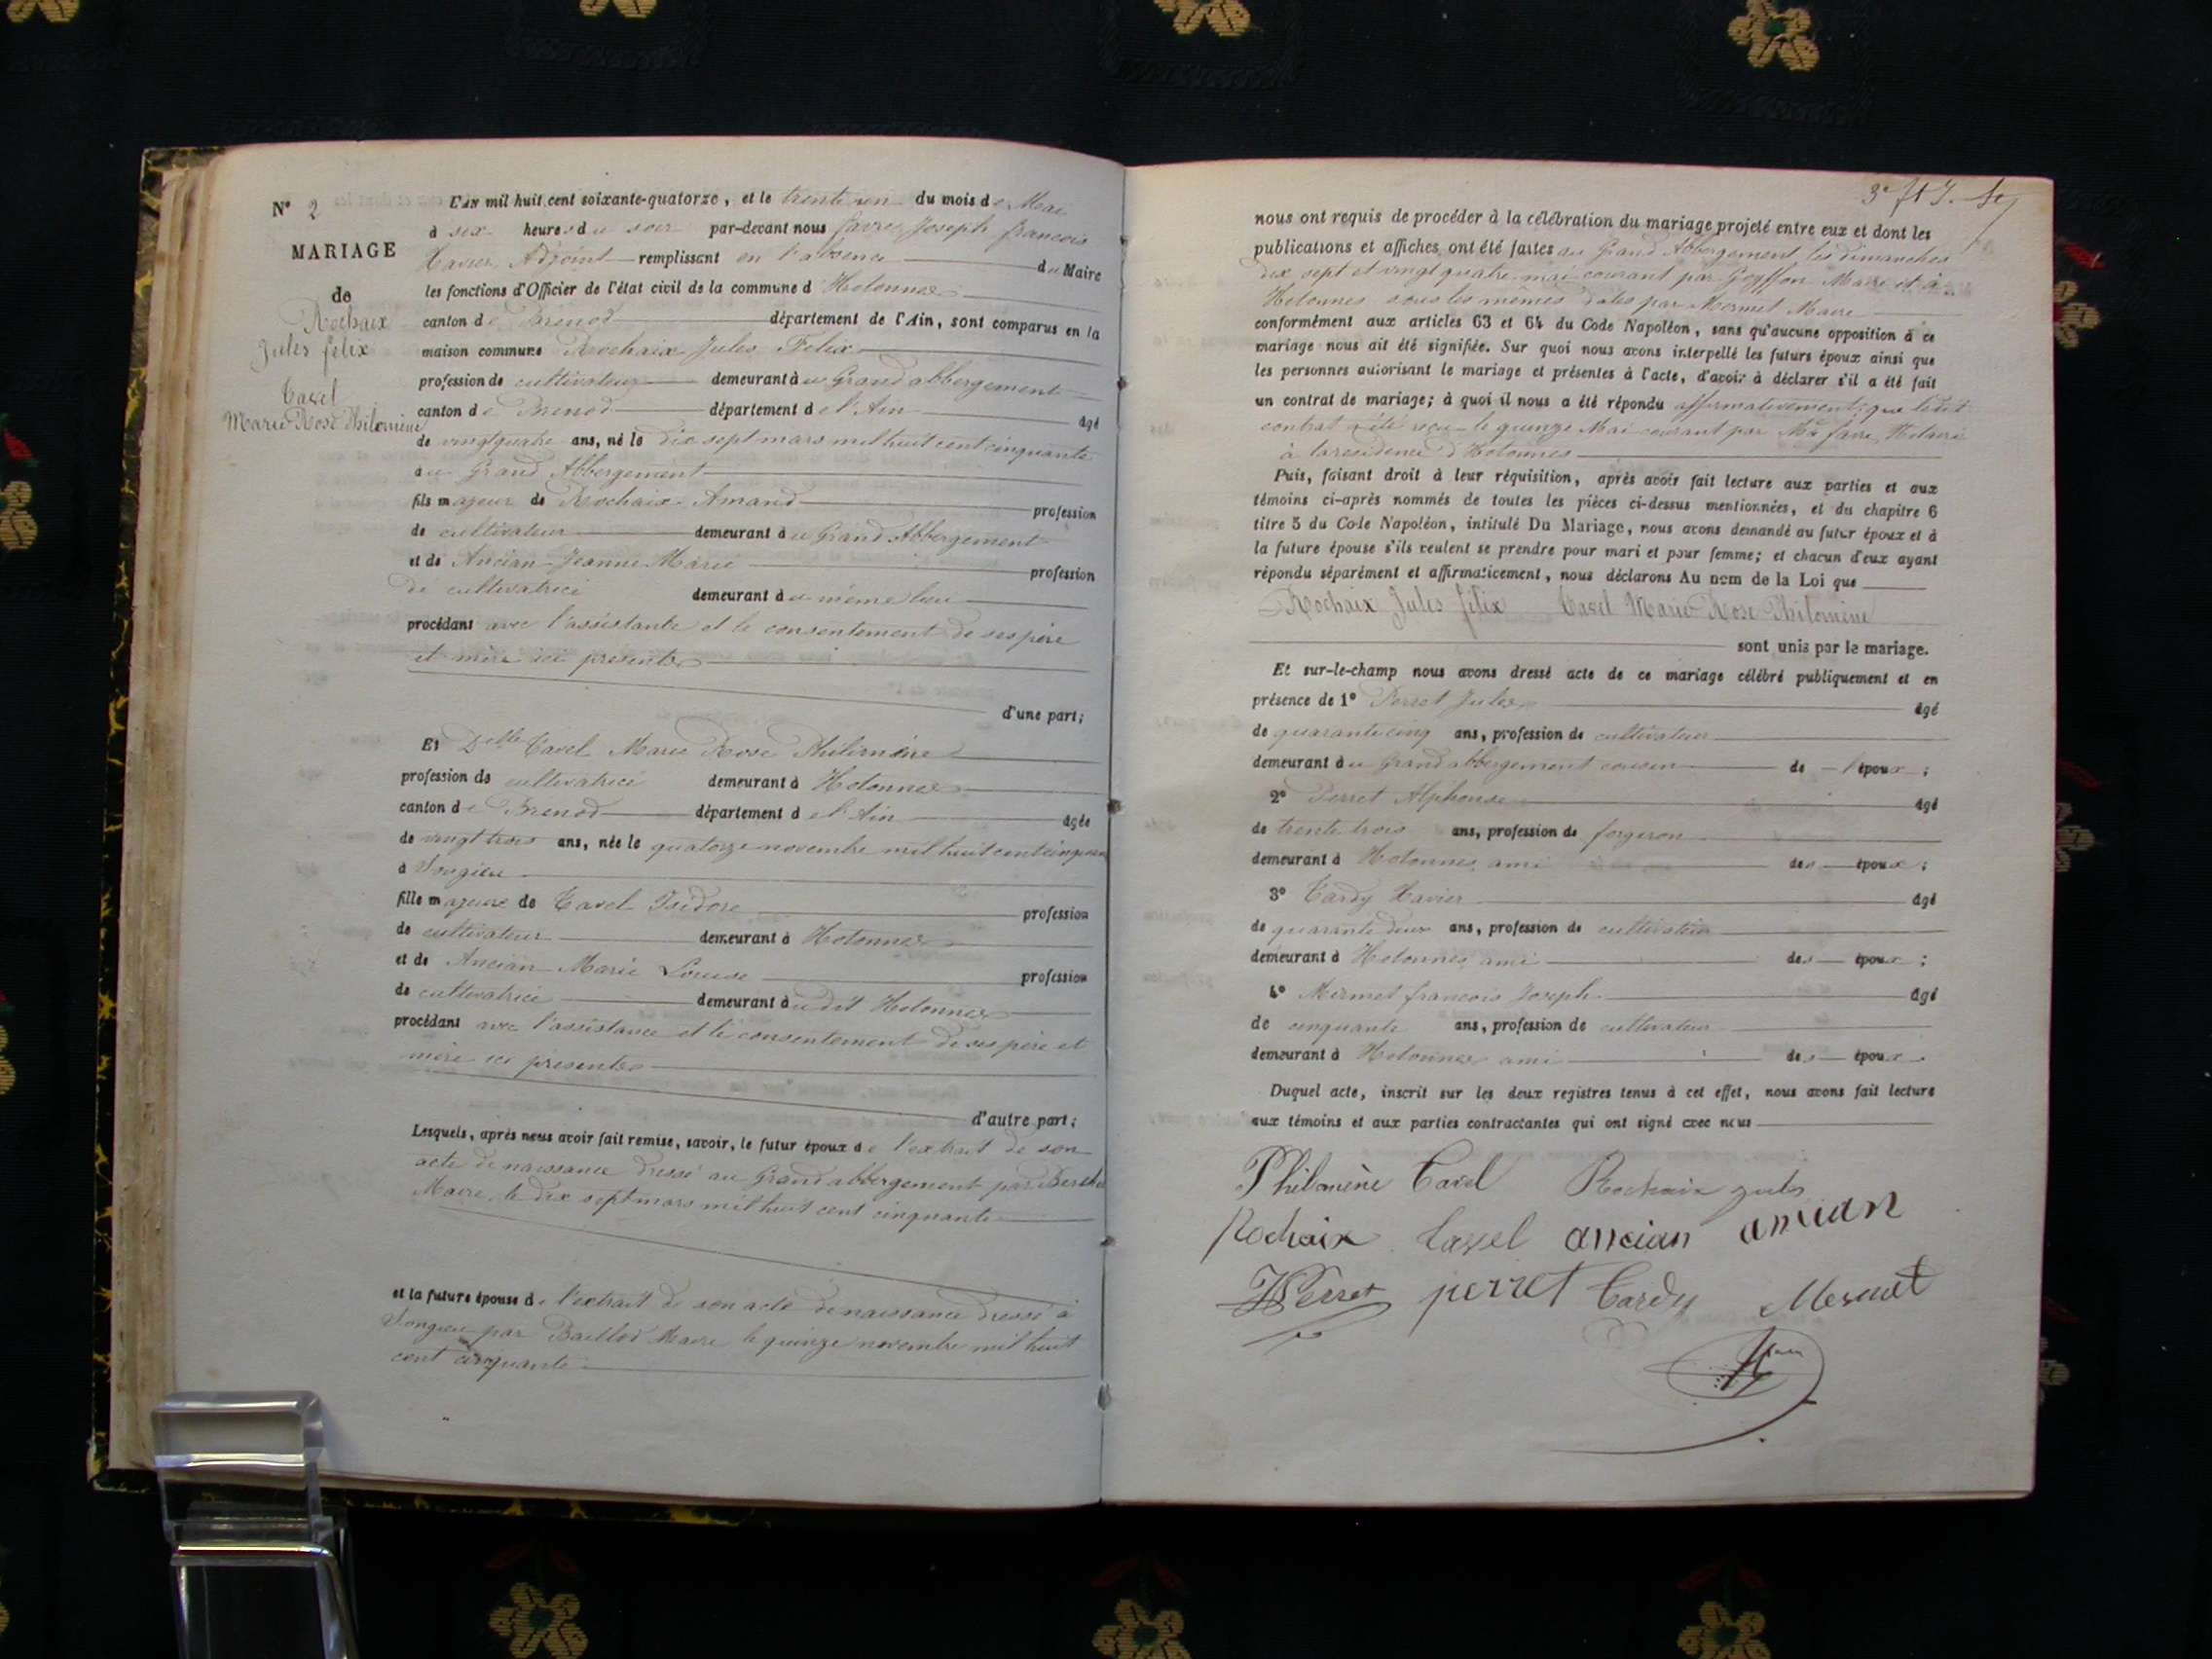 N° 2
MARIAGE
de
Rochaix
Jules félix
Tavel
Marie Rose Philomène
L'an mil huit cent soixante-quatorze, et le trente un du mois de Mai
à six heures du soir par-devant nous favre Joseph francois
Xavier Adjoint remplissant en l'absence du Maire
les fonctions d'Officier de l'état civil de la commune d'Hotonnes
canton de Brenod département de l'Ain, sont comparus en la
maison commune Rochaix Jules Felix
profession de cultivateur demeurant au Grand abbergement
canton de Brenod département de l'Ain âgé
de vingtquatre ans, né le dix sept mars mil huit cent cinquante
au Grand Abbergement
fils majeur de Rochaix Amand profession
de cultivateur demeurant au Grand Abbergement
et de Ancian Jeanne Marie profession
de cultivatrice demeurant au même lieu
procédant avec l'assistante et le consentement de ses père
et mère ici presents
d'une part;
Et Delle Tavel Marie Rose Philomène
profession de cultivatrice demeurant à Hotonnes
canton de Brenod département de l'Ain âgée
de vingt trois ans, née le quatorze novembre mil huit cent cinquante
à Songieu
fille majeure de Tavel Isidore profession
de cultivateur demeurant à Hotonnes
et de Ancian Marie Louise profession
de cultivatrice demeurant audit Hotonnes
procédant avec l'assistance et le consentement de ses père et
mère ici présents
d'autre part;
Lesquels, après nous avoir fait remise, savoir, le futur époux de l'extrait de son
acte de naissance dressé au Grand abbergement par
Maire, le dix sept mars mil huit cent cinquante
et la future épouse de l'extrait de son acte de naissance dressé à
Songieu par Baillod Maire le quinze novembre mil huit
cent cinquante
nous ont requis de procéder à la célébration du mariage projeté entre eux et dont les
publications et affiches ont été faites au Grand Abbergement les dimanches
dix sept et vingt quatre mai courant par Geoffon Maire et à
Hotonnes sous les mêmes dates par Mermet Maire
conformément aux articles 63 et 64 du Code Napoléon, sans qu'aucune opposition à ce
mariage nous ait été signifiée. Sur quoi nous avons interpellé les futurs époux ainsi que
les personnes autorisant le mariage et présentes à l'acte, d'avoir à déclarer s'il a été fait
un contrat de mariage; à quoi il nous a été répondu affirmativement, que ledit
contrat a été reçu le quinze Mai courant par Me favre Notaire
à la residence d'Hotonnes
Puis, faisant droit à leur réquisition, après avoir fait lecture aux parties et aux
témoins ci-après nommés de toutes les pièces ci-dessus mentionnées, et du chapitre 6
titre 5 du Code Napoléon, intitulé Du Mariage, nous avons demandé au futur époux et à
la future épouse s'ils veulent se prendre pour mari et pour femme; et chacun d'eux ayant
répondu séparément et affirmativement, nous déclarons Au nom de la Loi que
Rochaix Jules félix Tavel Marie Rose Philomène
sont unis par le mariage.
Et sur-le-champ nous avons dressé acte de ce mariage célébré publiquement et en
présence de 1° Perret Jules âgé
de quarante cinq ans, profession de cultivateur
demeurant au Grand abbergement cousin de l'époux;
2° Perret Alphonse âgé
de trente trois ans, profession de forgeron
demeurant à Hotonnes ami des époux;
3° Tardy Xavier âgé
de quarante deux ans, profession de cultivateur
demeurant à Hotonnes ami des époux;
4° Mermet francois Joseph âgé
de cinquante ans, profession de cultivateur
demeurant à Hotonnes ami des époux.
Duquel acte, inscrit sur les deux registres tenus à cet effet, nous avons fait lecture
aux témoins et aux parties contractantes qui ont signé avec nous
Philomène Tavel Rochaix jules
Rochaix Tavel ancian ancian
Perret perret Tardy Mermet